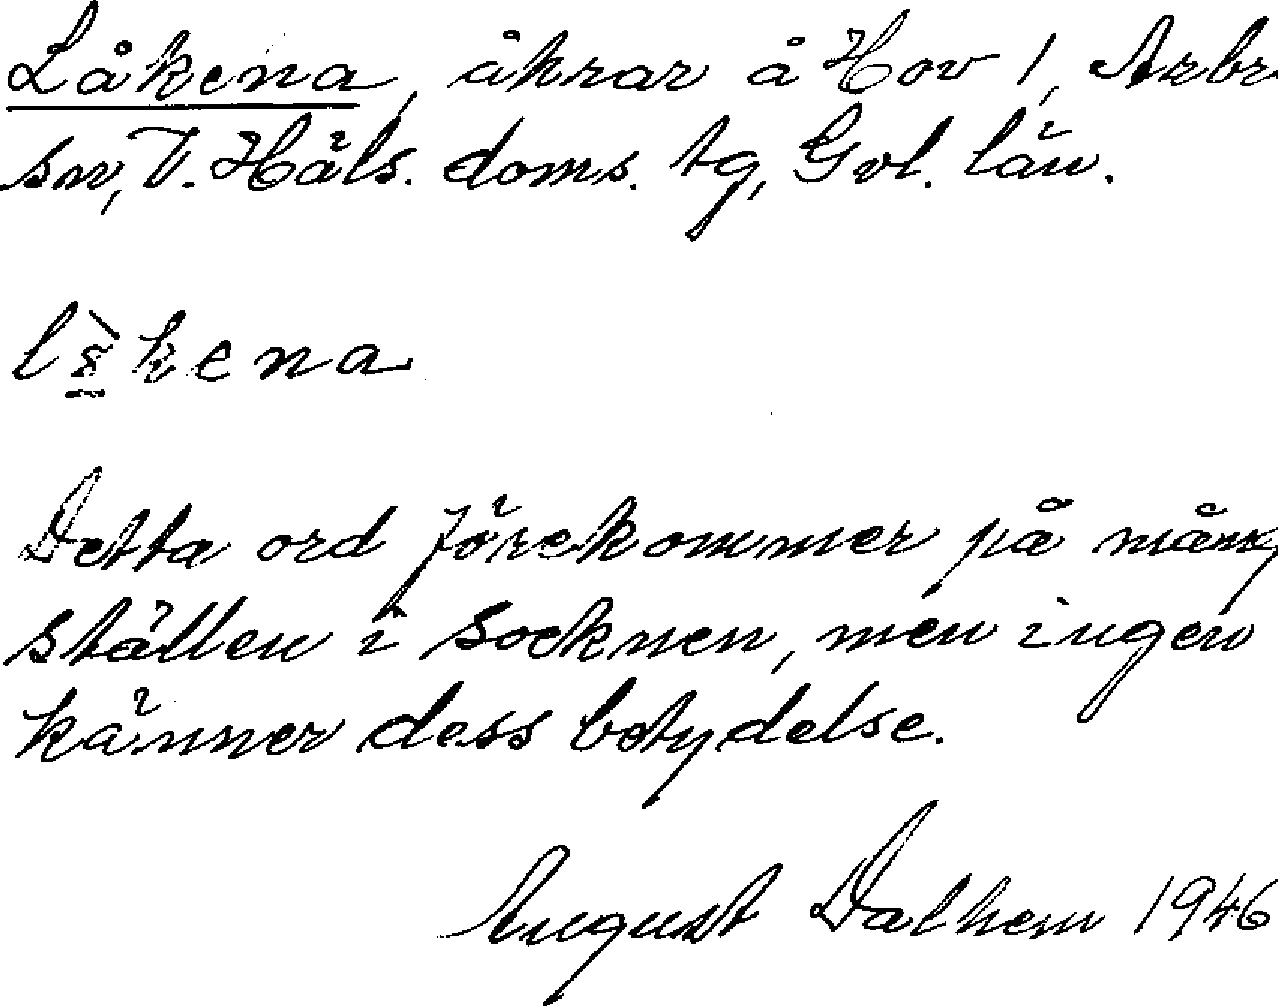 Låkena, åkrar å Hov 1, Arbr
sn, V. Häls. doms. tg, Gvl. län.
kena
Detta ord förekommer på mång
ställen i socknen, men ingen
känner dess betydelse.
August Dalhem 1946